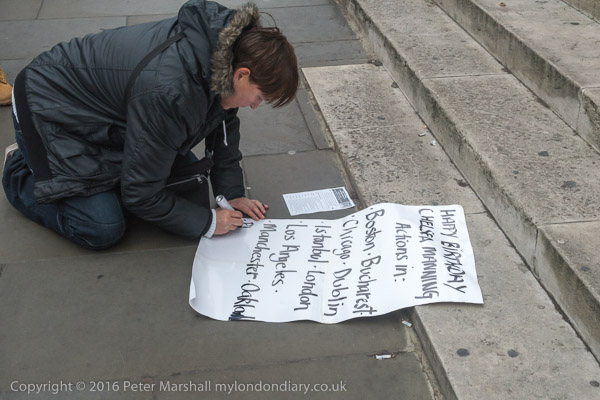 HAPPY BIRTHDAY
CHELSEA MANNING
Actions in:
Boston · Bucharest
Chicago · Dublin
Istanby · London
Los Angeles ·
Manchester · Oakland
Copyright © 2016 Peter Marshall mylondondiary.co.uk